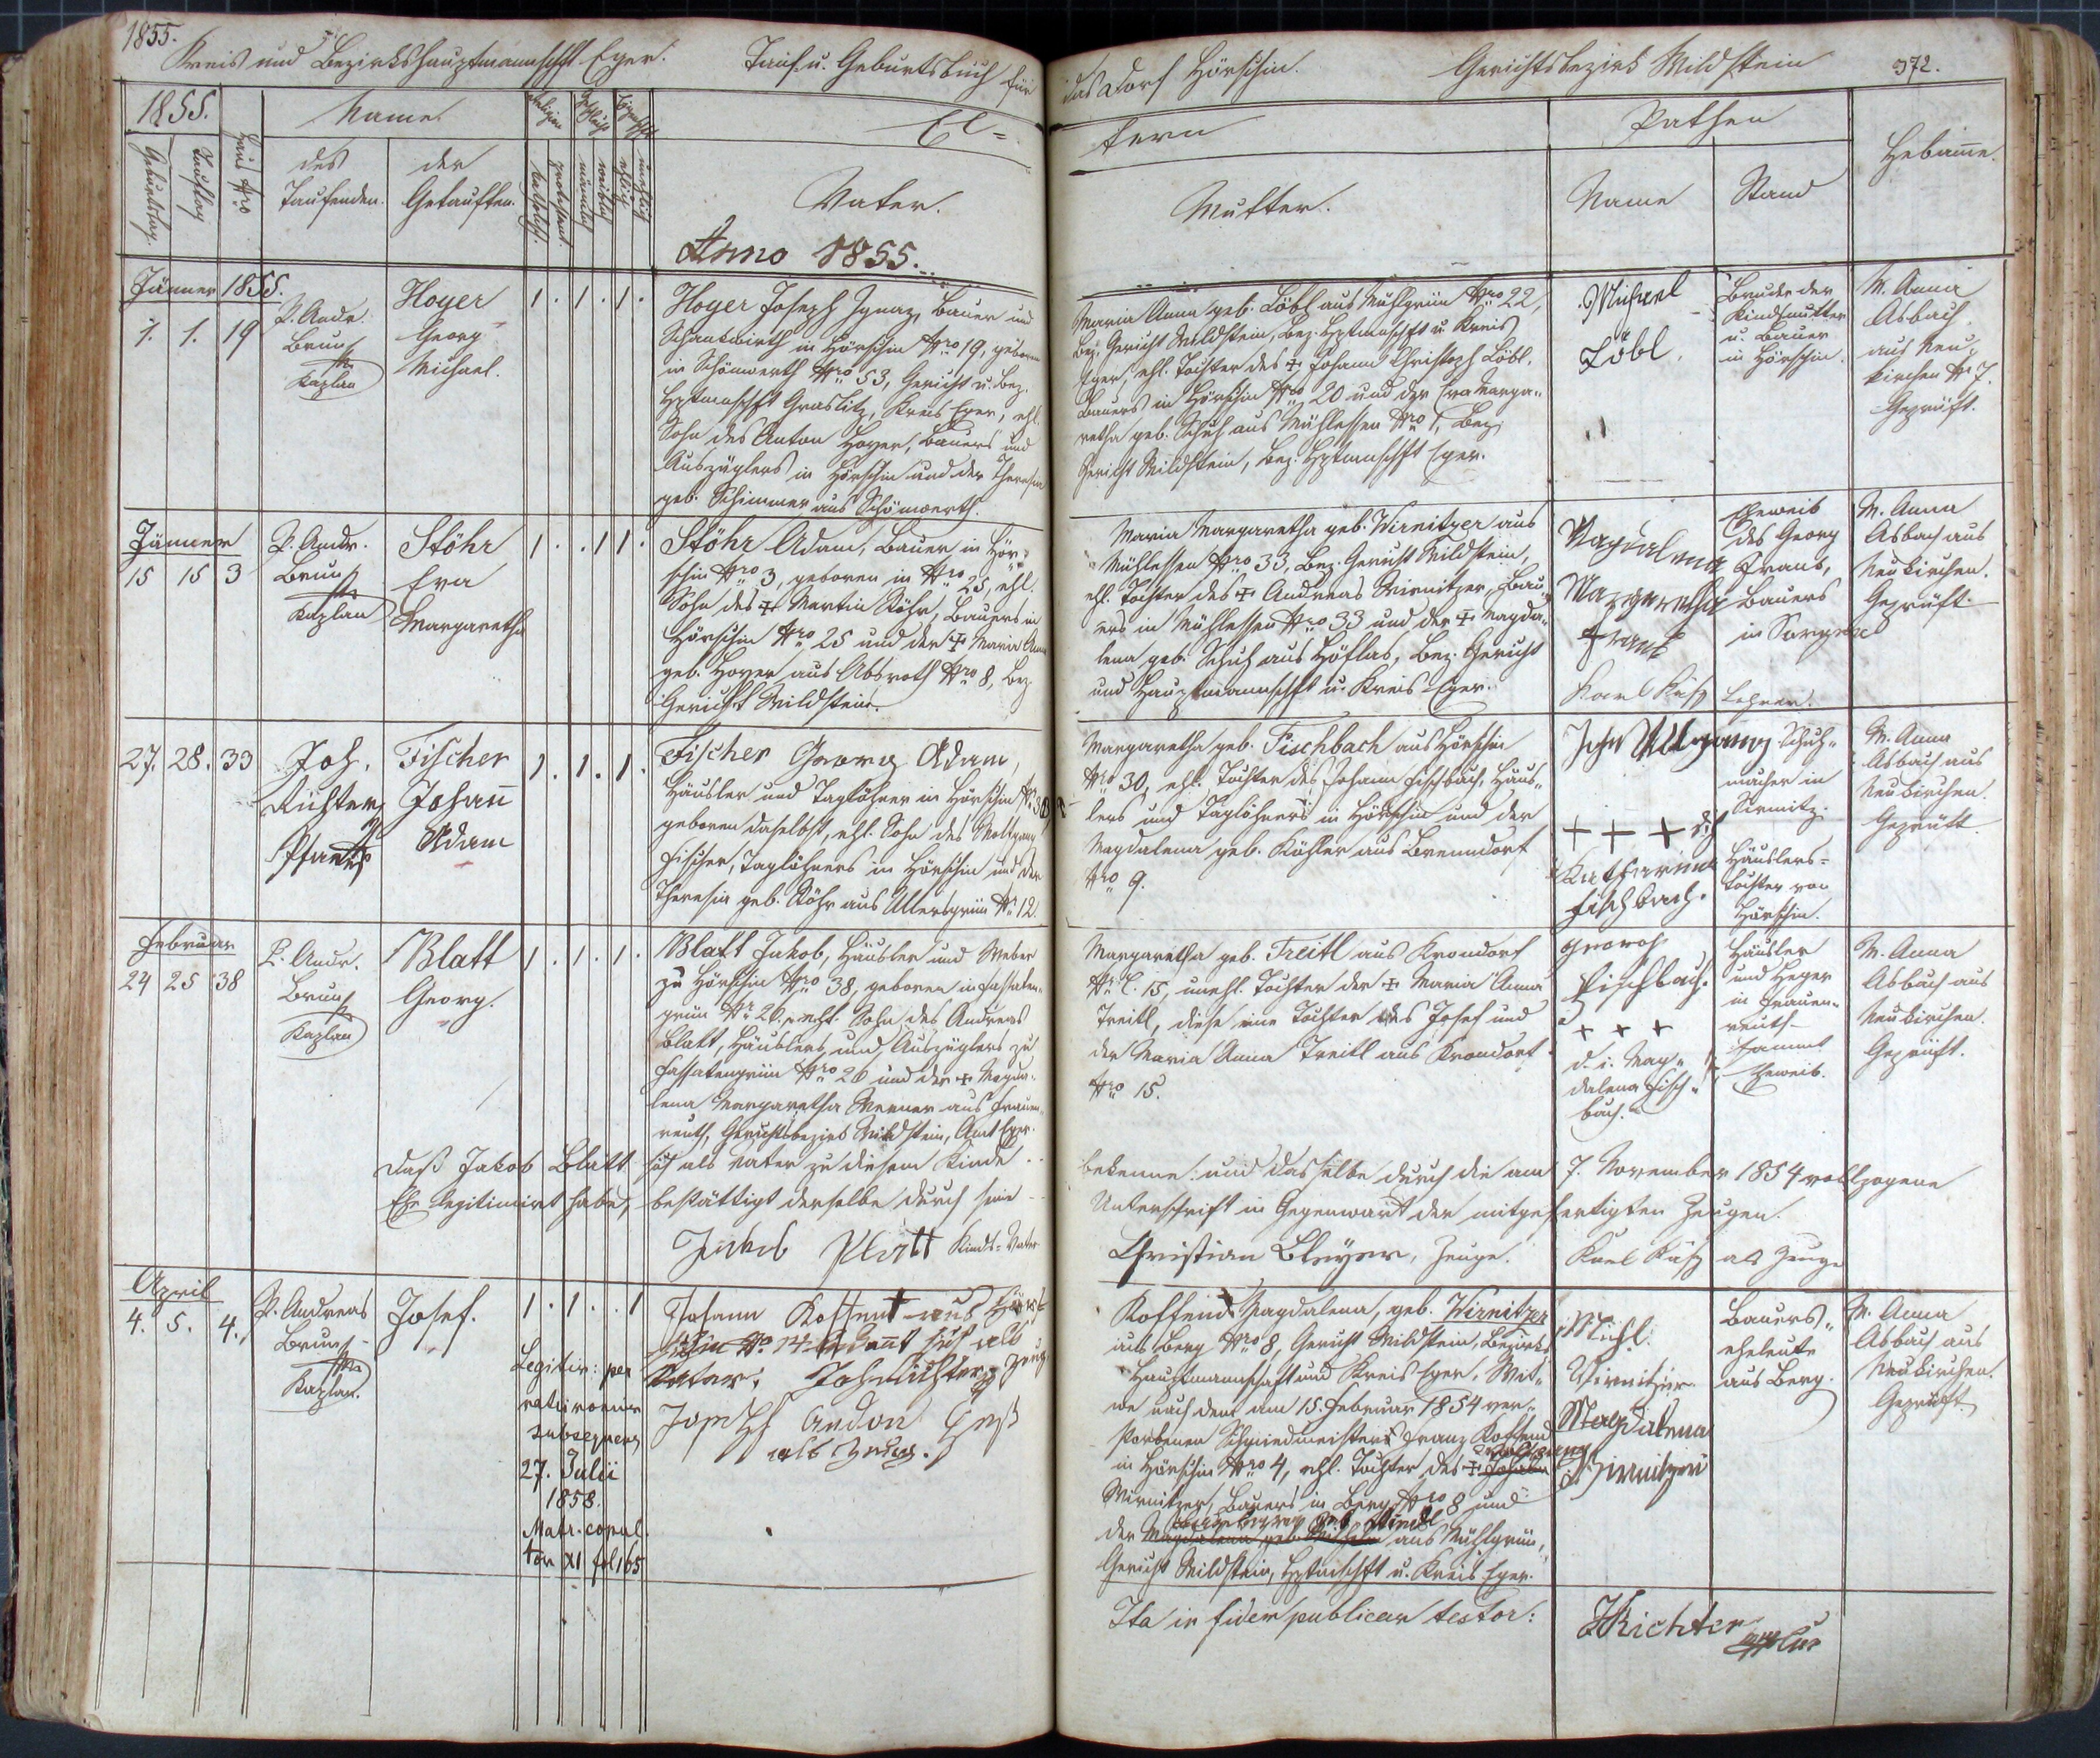 1855.
Kreis und Bezirkshauptmannschft Eger. Tauf- u. Geburtsbuch für das Dorf Hörschin. Gerichtsbezirk Wildstein 372.
1855.
Geburtstag. Tauftag Haus Nro
Name
des Taufenden.
der Getauften.
Religion
katholisch. protestant.
Geschlecht
männlich weiblich
ehelig unehelig
El=
tern
Vater.
Mutter.
Pathen
Name
Stand
Hebamme.
Anno 1855.
Jänner 1855.
1. 1. 19
P. Andr.
Brunz
Kaplan
Hoyer
Georg
Michael.
1. 1. 1.
Hoyer Joseph Ignaz, Bauer und
Schankwirth in Hörschin Nro 19, geboren
in Schönwerth Nro 53, Gericht u. Bez.
Hptmnschft Graslitz, Kreis Eger, ehl.
Sohn des Anton Hoyer, Bauers und
Auszüglers in Hörschin und der Theresia
geb. Schimmer aus Schönwerth.
Maria Anna geb. Löbl aus Mühlgrün Nro 22,
Bez. Gericht Wildstein, Bez. Hptmnschft u. Kreis
Eger, ehl. Tochter des + Johann Christoph Löbl,
Bauers in Hörschin Nro 20 und der Eva Marga-
retha geb. Schuh aus Mühlessen Nro 1, Bez.
Gericht Wildstein, Bez. Hptmnschft Eger.
Michael
Löbl.
Bruder der
Kindsmutter
u. Bauer
in Hörschin.
M. Anna
Asbach
aus Neu-
kirchen Nr 7.
Geprüft.
Jänner
15 15 3
P. Andr.
Brunz
Kaplan
Stöhr
Eva
Margaretha
1. . 1 1.
Stöhr Adam, Bauer in Hör-
schin Nro 3, geboren in Nro 25, ehl.
Sohn des + Martin Stöhr, Bauers in
Hörschin Nro 25 und der + Maria Anna
geb. Hoyer aus Absroth Nro 8, Bez.
Gericht Wildstein.
Maria Margaretha geb. Wirnitzer aus
Mühlessen Nro 33, Bez. Gericht Wildstein,
ehl. Tochter des + Andreas Wirnitzer, Bau-
ers in Mühlessen Nro 33 und der + Magda-
lena geb. Schuh aus Höflas, Bez. Gericht
und Hauptmannschft u. Kreis Eger.
Magdalena
Margaretha
Frank
Karl Käs
Eheweib
des Georg
Frank,
Bauers
in
Lehrer.
M. Anna
Asbach aus
Neukirchen.
Geprüft
27. 28. 33
Joh.
Richter
Pfarrer
Fischer
Johann
Adam
1. 1. 1.
Fischer Georg Adam,
Häusler und Taglöhner in Hörschin
geboren daselbst, ehl. Sohn des Wolfgang
Fischer, Taglöhners in Hörschin und der
Theresia geb. Stöhr aus Ullersgrün Nr 12.
Margaretha geb. Fischbach aus Hörschin
Nro 30, ehl. Tochter des Johann Fischbach, Häus-
lers und Taglöhners in Hörschin und der
Magdalena geb. Köhler aus Brenndorf
Nro 9.
+ + +
Katharina
Fischbach.
Schuh-
macher in
Sirmitz.
Häuslers-
Tochter von
Hörschin.
M. Anna
Asbach aus
Neukirchen.
Geprüft.
Februar
24 25 38
P. Andr.
Brunz
Kaplan
Blatt
Georg.
1. 1. 1.
Blatt Jakob, Häusler und Weber
zu Hörschin Nro 38, geboren in Fassaten-
grün Nr 26. ehl. Sohn des Andreas
Blatt, Häuslers und Auszüglers zu
Fassatengrün Nro 26 und der + Magda-
lena Margaretha Werner aus Frauen-
reuth, Gerichtsbezirk Wildstein, Amt Eger.
Margaretha geb. Treitl aus Krondorf
N. C. 15, unehl. Tochter der + Maria Anna
Treitl, diese eine Tochter des Josef und
der Maria Anna Treitl aus Krondorf
Nro 15.
Georg
Fischbach.
+ + +
d. i. Mag-
dalena Fisch-
bach.
Häusler
und Heger
in Frauen-
reuth
sammt
Eheweib.
M. Anna
Asbach aus
Neukirchen.
Geprüft.
Daß Jakob Blatt sich als Vater zu diesem Kinde bekenne und dasselbe durch die am 7. November 1854 vollzogene
Ehe legitimirt habe, bestättigt derselbe durch seine Unterschrift in Gegenwart der mitgefertigten Zeugen.
Jakob Platt Kinds-Vater Christian Bleyer, Zeuge. Karl Käs als Zeuge
April
4. 5. 4.
P. Andreas
Brunz
Kaplan.
Josef.
1. 1. . 1
Legitim: per
matrimonium
subsequens
27. Julii
1858.
Matr. copul.
Tom XI fol 165
Johann Koffent aus Hör-
schin No 14 bekennt sich als
Vater. Joh. Richter Zeug
Joseph Andon
als Zeug.
Koffend Magdalena, geb. Wirnitzer
aus Berg Nro 8, Gericht Wildstein, Bezirks
Hauptmannschaft und Kreis Eger, Wit-
we nach dem am 15. Februar 1854 ver-
storbenen Schmiedmeister Franz Koffend
in Hörschin Nro 4, ehl. Tochter des + Wolfgang
Wirnitzer, Bauers in Berg Nro 8 und
der Margareta geb. aus Mühlgrün,
Gericht Wildstein, Hptmschft u. Kreis Eger.
Michl
Wirnitzer
Magdalena
Wirnitzer
Bauers-
eheleute
aus Berg.
M. Anna
Asbach aus
Neukirchen.
Geprüft.
Ita in fidem publicam testor: JRichter